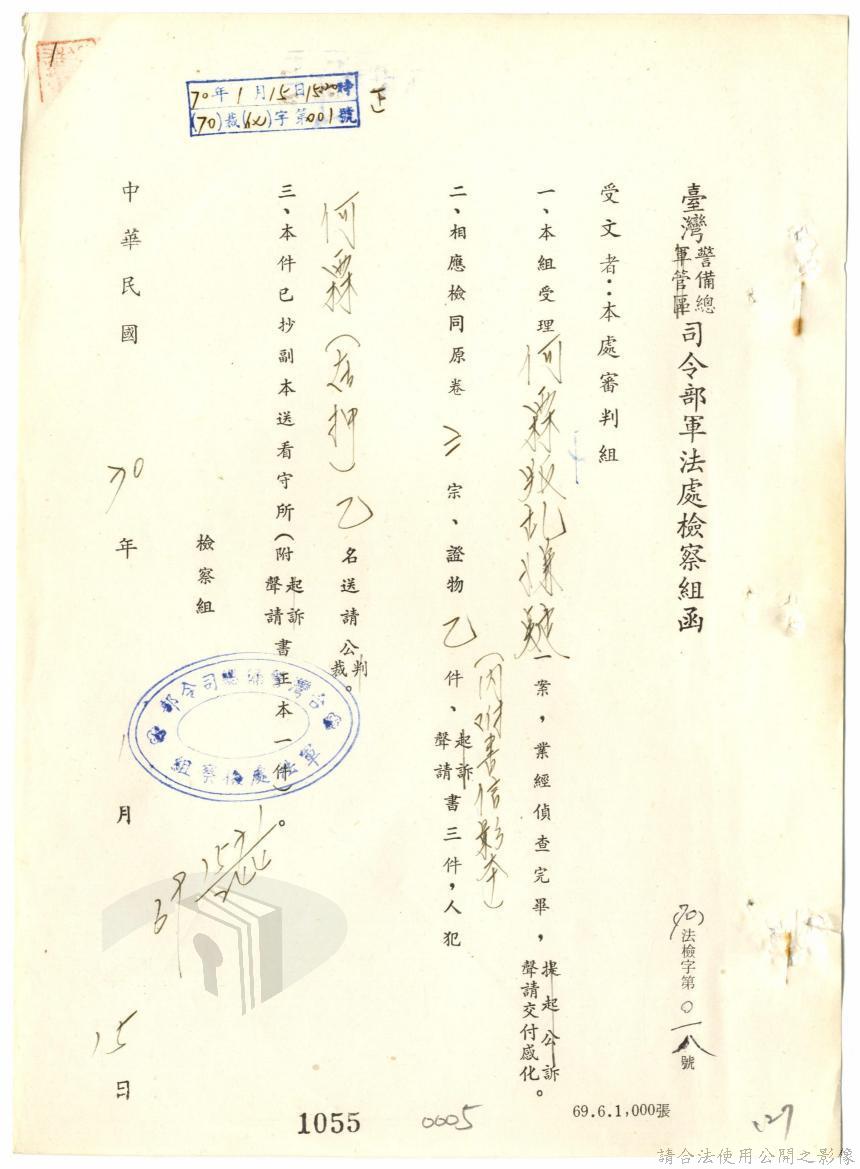 臺灣警備總軍管區司令部軍法處檢察組函
(70)法檢字第〇一八號
受文者：本處審判組
一、本組受理何霖叛乱嫌疑一案，業經偵查完畢，提起公訴聲請交付感化。
二、相應檢同原卷三宗、證物乙件、起訴聲請書三件，人犯
(內附書信影本)
何霖(在押)乙名送請公判裁。
三、本件已抄副本送看守所(附起訴聲請書正本一件)。
檢察組
中華民國70年1月15日
70年1月15日1500時
(70)裁()字第001號
正
台灣警備總司令部
軍法處檢察組
1055
0005
69.6.1,000張
127
請合法使用公開之影像